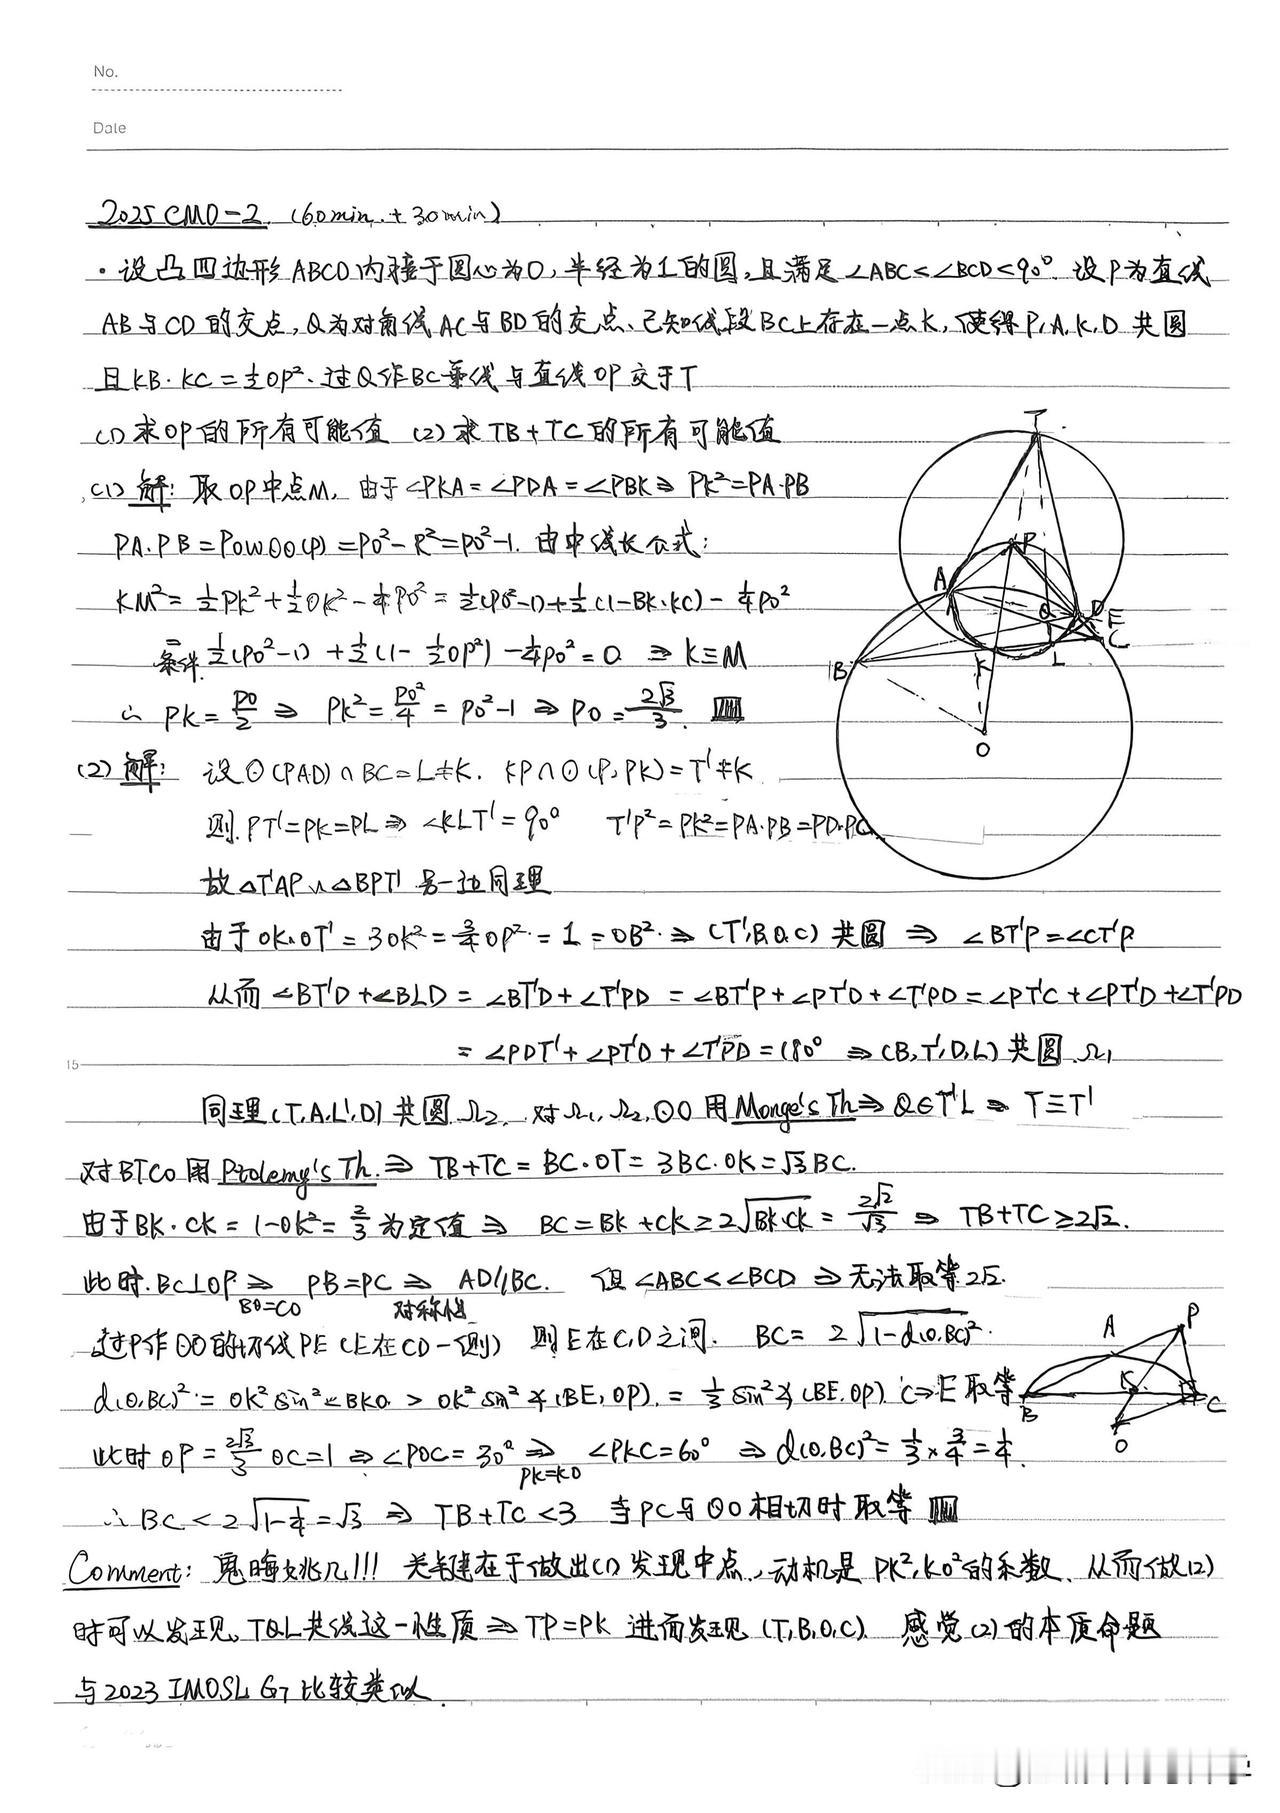 No.
Date
2025 CMO-2 (60min + 30min)
· 设凸四边形ABCD内接于圆心为O,半径为1的圆,且满足 ∠ABC<∠BCD<90° 设P为直线
AB与CD的交点,Q为对角线AC与BD的交点、已知线段BC上存在一点K,使得P,A,K,D 共圆
且KB·KC=½OP². 过Q作BC垂线与直线OP交于T
(1) 求OP的所有可能值 (2) 求TB+TC的所有可能值
(1) 解: 取OP中点M, 由于∠PKA=∠PDA=∠PBK⇒ PK²=PA·PB
PA·PB=Pow⊙O(P)=PO²-R²=PO²-1. 由中线长公式:
KM²=½PK²+½OK²-¼PO²=½(PO²-1)+½(1-BK·KC)-¼PO²
=条件 ½(PO²-1)+½(1-½OP²)-¼PO²=0 ⇒ K≡M
∴ PK=PO/2 ⇒ PK²=PO²/4=PO²-1 ⇒ PO=2√3/3.
(2) 解: 设⊙(PAD)∩BC=L≠K. KP∩⊙(P,PK)=T'≠K
则.PT'=PK=PL⇒∠KLT'=90° T'P²=PK²=PA·PB=PD·PC
故△T'AP∽△BPT' 另一边同理
由于OK·OT'=3OK²=¾OP²=1=OB²⇒(T',B,O,C)共圆 ⇒ ∠BT'P=∠CT'P
从而∠BT'D+∠BLD=∠BT'D+∠T'PD=∠BT'P+∠PT'D+∠T'PD=∠PT'C+∠PT'D+∠T'PD
=∠PDT'+∠PT'D+∠T'PD=180° ⇒(B,T',D,L)共圆 Ω₁
同理(T,A,L',D)共圆 Ω₂. 对Ω₁,Ω₂,⊙O 用Monge's Th⇒ Q∈T'L ⇒ T≡T'
对BTCO用Ptolemy's Th.⇒ TB+TC=BC·OT=3BC·OK=√3BC.
由于BK·CK=1-OK²=2/3为定值⇒ BC=BK+CK≥2√BK·CK=2√2/√3 ⇒ TB+TC≥2√2.
此时.BC⊥OP ⇒BO=CO PB=PC ⇒对称性 AD//BC. 但∠ABC<∠BCD⇒无法取等2√2.
过P作⊙O的切线PE(E在CD一侧) 则E在C,D之间. BC=2√1-d(O,BC)².
d(O,BC)²=OK²sin²∠BKO>OK²sin²∡(BE,OP).=⅓sin²∡(BE,OP) C→E取等
此时OP=2√3/3 OC=1⇒∠POC=30° ⇒PK=KO ∠PKC=60° ⇒d(O,BC)²=⅓×¾=¼.
∴ BC<2√1-¼=√3 ⇒ TB+TC<3 当PC与⊙O相切时取等
Comment: 鬼晦姚几!!! 关键在于做出(1)发现中点,动机是PK²,KO²的系数. 从而做(2)
时可以发现TQL共线这一性质⇒TP=PK 进而发现(T,B,O,C). 感觉(2)的本质命题
与2023 IMOSL G7比较类似.
T
P
A
Q
D
E
C
B
K
L
O
A
P
K
B
E
C
O
15